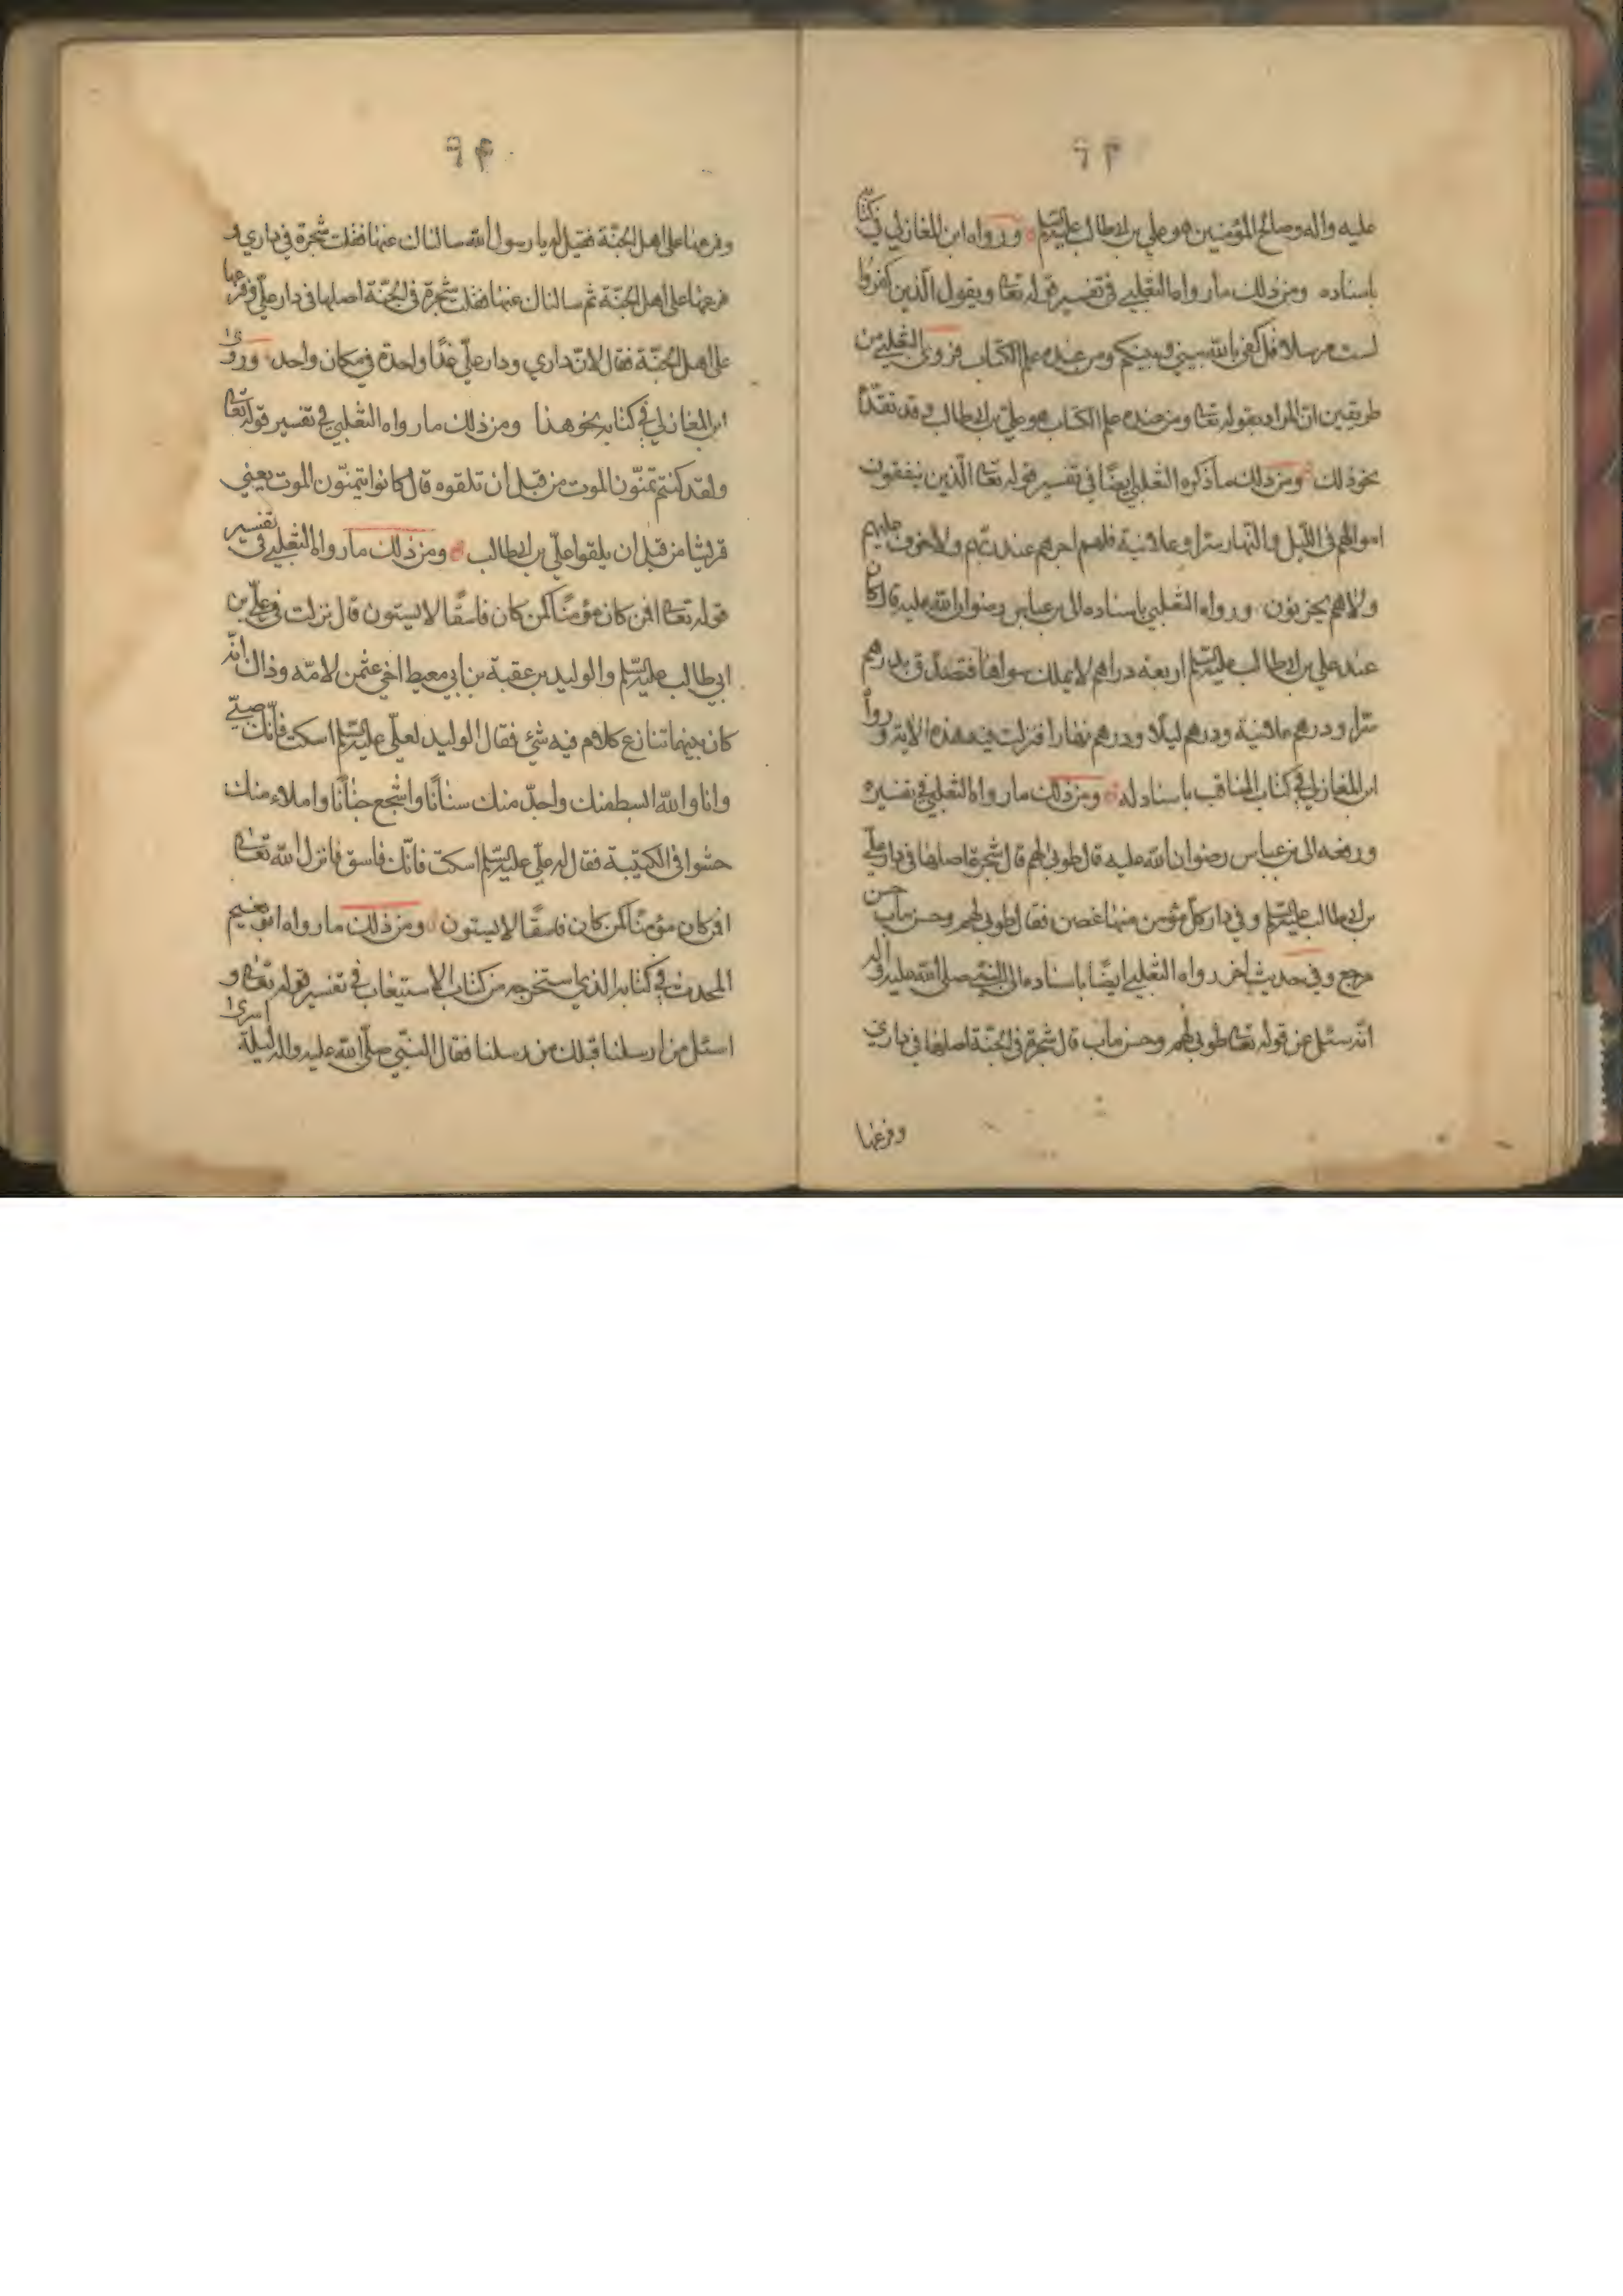 ٦٣
عليه واله وصالح المؤمنين هو علي بن ابيطالب عليه السلم ورواه ابن المغازلي في كتابه
باسناده ومن ذلك ما رواه الثعلبي في تفسير قوله تعا ويقول الذين كفروا
لست مرسلا قل كفى بالله بيني وبينكم ومن عنده علم الكتاب فروى الثعلبي من
طريقين ان المراد بقوله تعا ومن عنده علم الكتاب هو علي بن ابيطالب وقد تقدم
نحو ذلك ومن ذلك ما ذكره الثعلبي ايضًا في تفسير قوله تعا الذين ينفقون
اموالهم في الليل والنهار سرا وعلانية فلهم اجرهم عند ربهم ولا خوف عليهم
ولا هم يحزنون ورواه الثعلبي باسناده الى بن عباس رضوان الله عليه قال كان
عند علي بن ابيطالب عليه السلم اربعة دراهم لا يملك سواها فتصدق بدرهم
سرا ودرهم علانية ودرهم ليلًا ودرهم نهارا فنزلت فيه هذه الاية ورواه
ابن المغازلي في كتاب المناقب باسناد له ومن ذلك ما رواه الثعلبي في تفسيره
ورفعه الى بن عباس رضوان الله عليه قال طوبى لهم قال شجرة اصلها في دار علي
بن ابيطالب عليه السلم وفي دار كل مؤمن منها غصن فقال طوبى لهم وحسن ماب حسن
مرجع وفي حديث اخر رواه الثعلبي ايضًا باسناده الى النبي صلى الله عليه واله
انه سئل عن قوله تعا طوبى لهم وحسن مآب قال شجرة في الجنة اصلها في داري
وفرعها
٦٤
وفرعها على اهل الجنة فقيل له يا رسول الله سالناك عنها فقلت شجرة في داري و
فرعها على اهل الجنة ثم سالناك عنها فقلت شجرة في الجنة اصلها في دار علي وفرعها
على اهل الجنة فقال لان داري ودار علي غدًا واحدة في مكان واحد وروى
ابن المغازلي في كتابه نحو هذا ومن ذلك ما رواه الثعلبي في تفسير قوله تعا
ولقد كنتم تمنون الموت من قبل ان تلقوه قال كانوا يتمنون الموت يعني
قريشا من قبل ان يلقوا علي بن ابيطالب ومن ذلك ما رواه الثعلبي في تفسير
قوله تعا افمن كان مؤمنًا كمن كان فاسقًا لا يستون قال نزلت في علي بن
ابي طالب عليه السلم والوليد بن عقبة بن ابي معيط اخي عثمن لامه وذاك انه
كان بينهما تنازع كلام فيه شئ فقال الوليد لعلي عليه السلم اسكت فانك صبي
وانا والله ابسط منك واحد منك سنانًا واشجع جنانًا واملاء منك
حشوا في الكتيبة فقال له علي عليه السلم اسكت فانك فاسق فانزل الله تعا
افمن كان مؤمنًا كمن كان فاسقًا لا يستون ومن ذلك ما رواه ابو نعيم
المحدث في كتابه الذي استخرجه من كتاب الاستيعاب في تفسير قوله تعا و
اسئل من ارسلنا قبلك من رسلنا فقال النبي صلى الله عليه واله ليلة اسرى